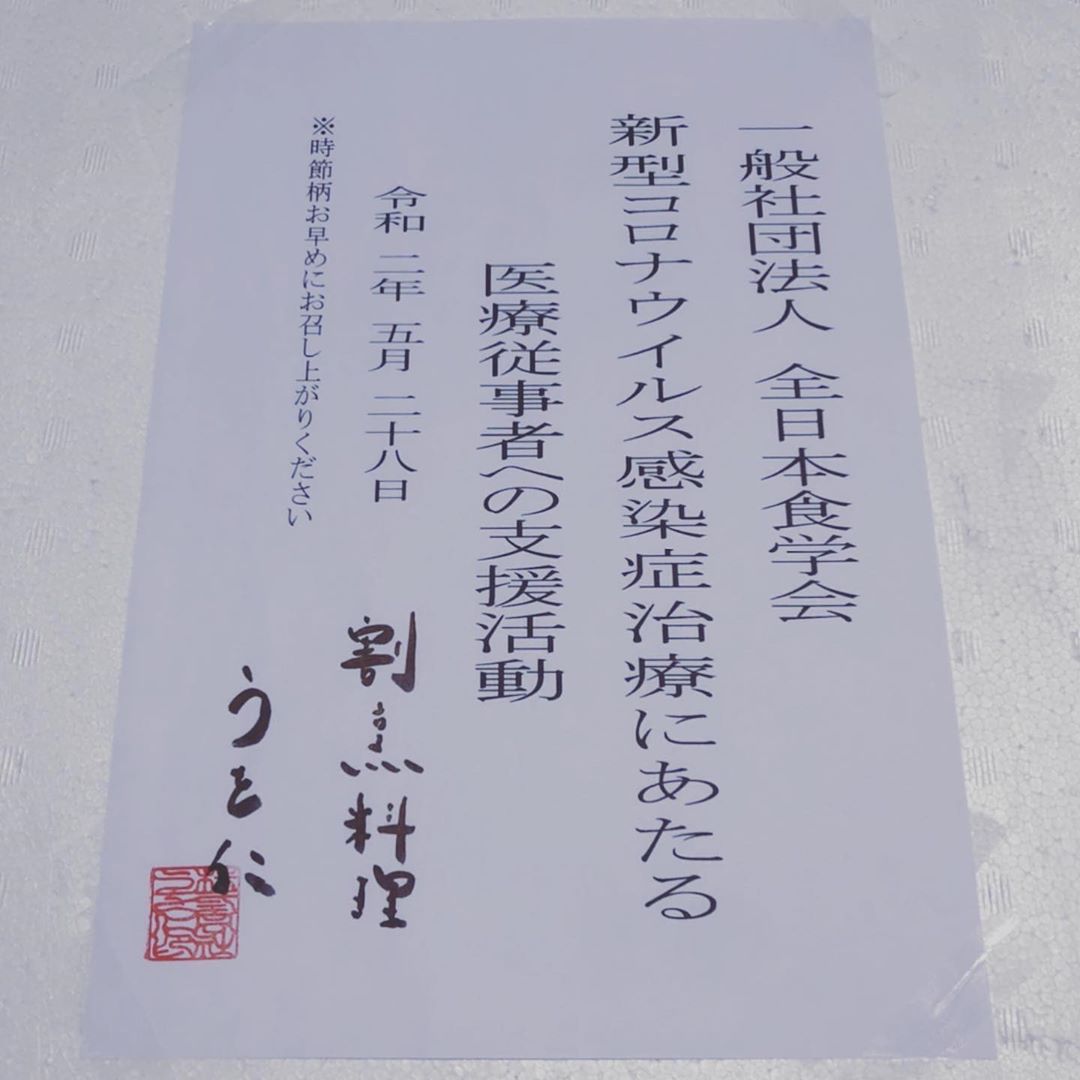 一般社団法人 全日本食学会
新型コロナウイルス感染症治療にあたる
医療従事者への支援活動
令和 二年 五月 二十八日
※時節柄お早めにお召し上がりください
割烹料理
うを仁